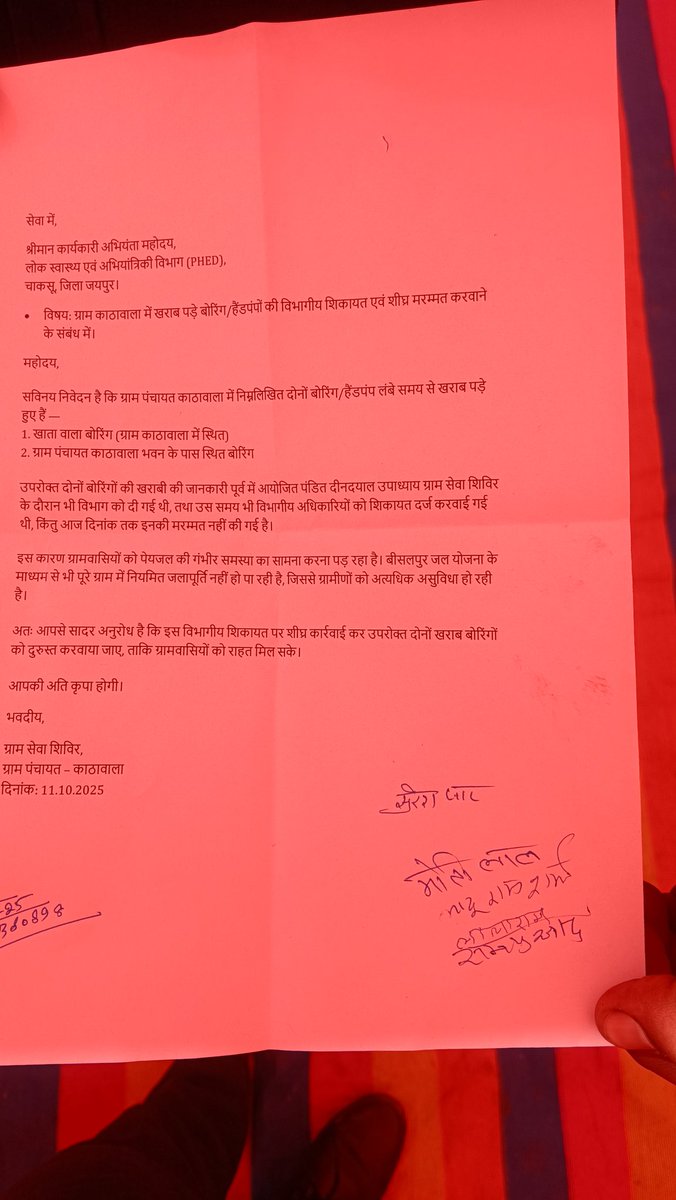 सेवा में,
श्रीमान कार्यकारी अभियंता महोदय,
लोक स्वास्थ्य एवं अभियांत्रिकी विभाग (PHED),
चाकसू, जिला जयपुर।
• विषय: ग्राम काठावाला में खराब पड़े बोरिंग/हैंडपंपों की विभागीय शिकायत एवं शीघ्र मरम्मत करवाने
के संबंध में।
महोदय,
सविनय निवेदन है कि ग्राम पंचायत काठावाला में निम्नलिखित दोनों बोरिंग/हैंडपंप लंबे समय से खराब पड़े
हुए हैं —
1. खाता वाला बोरिंग (ग्राम काठावाला में स्थित)
2. ग्राम पंचायत काठावाला भवन के पास स्थित बोरिंग
उपरोक्त दोनों बोरिंगों की खराबी की जानकारी पूर्व में आयोजित पंडित दीनदयाल उपाध्याय ग्राम सेवा शिविर
के दौरान भी विभाग को दी गई थी, तथा उस समय भी विभागीय अधिकारियों को शिकायत दर्ज करवाई गई
थी, किंतु आज दिनांक तक इनकी मरम्मत नहीं की गई है।
इस कारण ग्रामवासियों को पेयजल की गंभीर समस्या का सामना करना पड़ रहा है। बीसलपुर जल योजना के
माध्यम से भी पूरे ग्राम में नियमित जलापूर्ति नहीं हो पा रही है, जिससे ग्रामीणों को अत्यधिक असुविधा हो रही
है।
अतः आपसे सादर अनुरोध है कि इस विभागीय शिकायत पर शीघ्र कार्रवाई कर उपरोक्त दोनों खराब बोरिंगों
को दुरुस्त करवाया जाए, ताकि ग्रामवासियों को राहत मिल सके।
आपकी अति कृपा होगी।
भवदीय,
ग्राम सेवा शिविर,
ग्राम पंचायत – काठावाला
दिनांक: 11.10.2025
मोती लाल